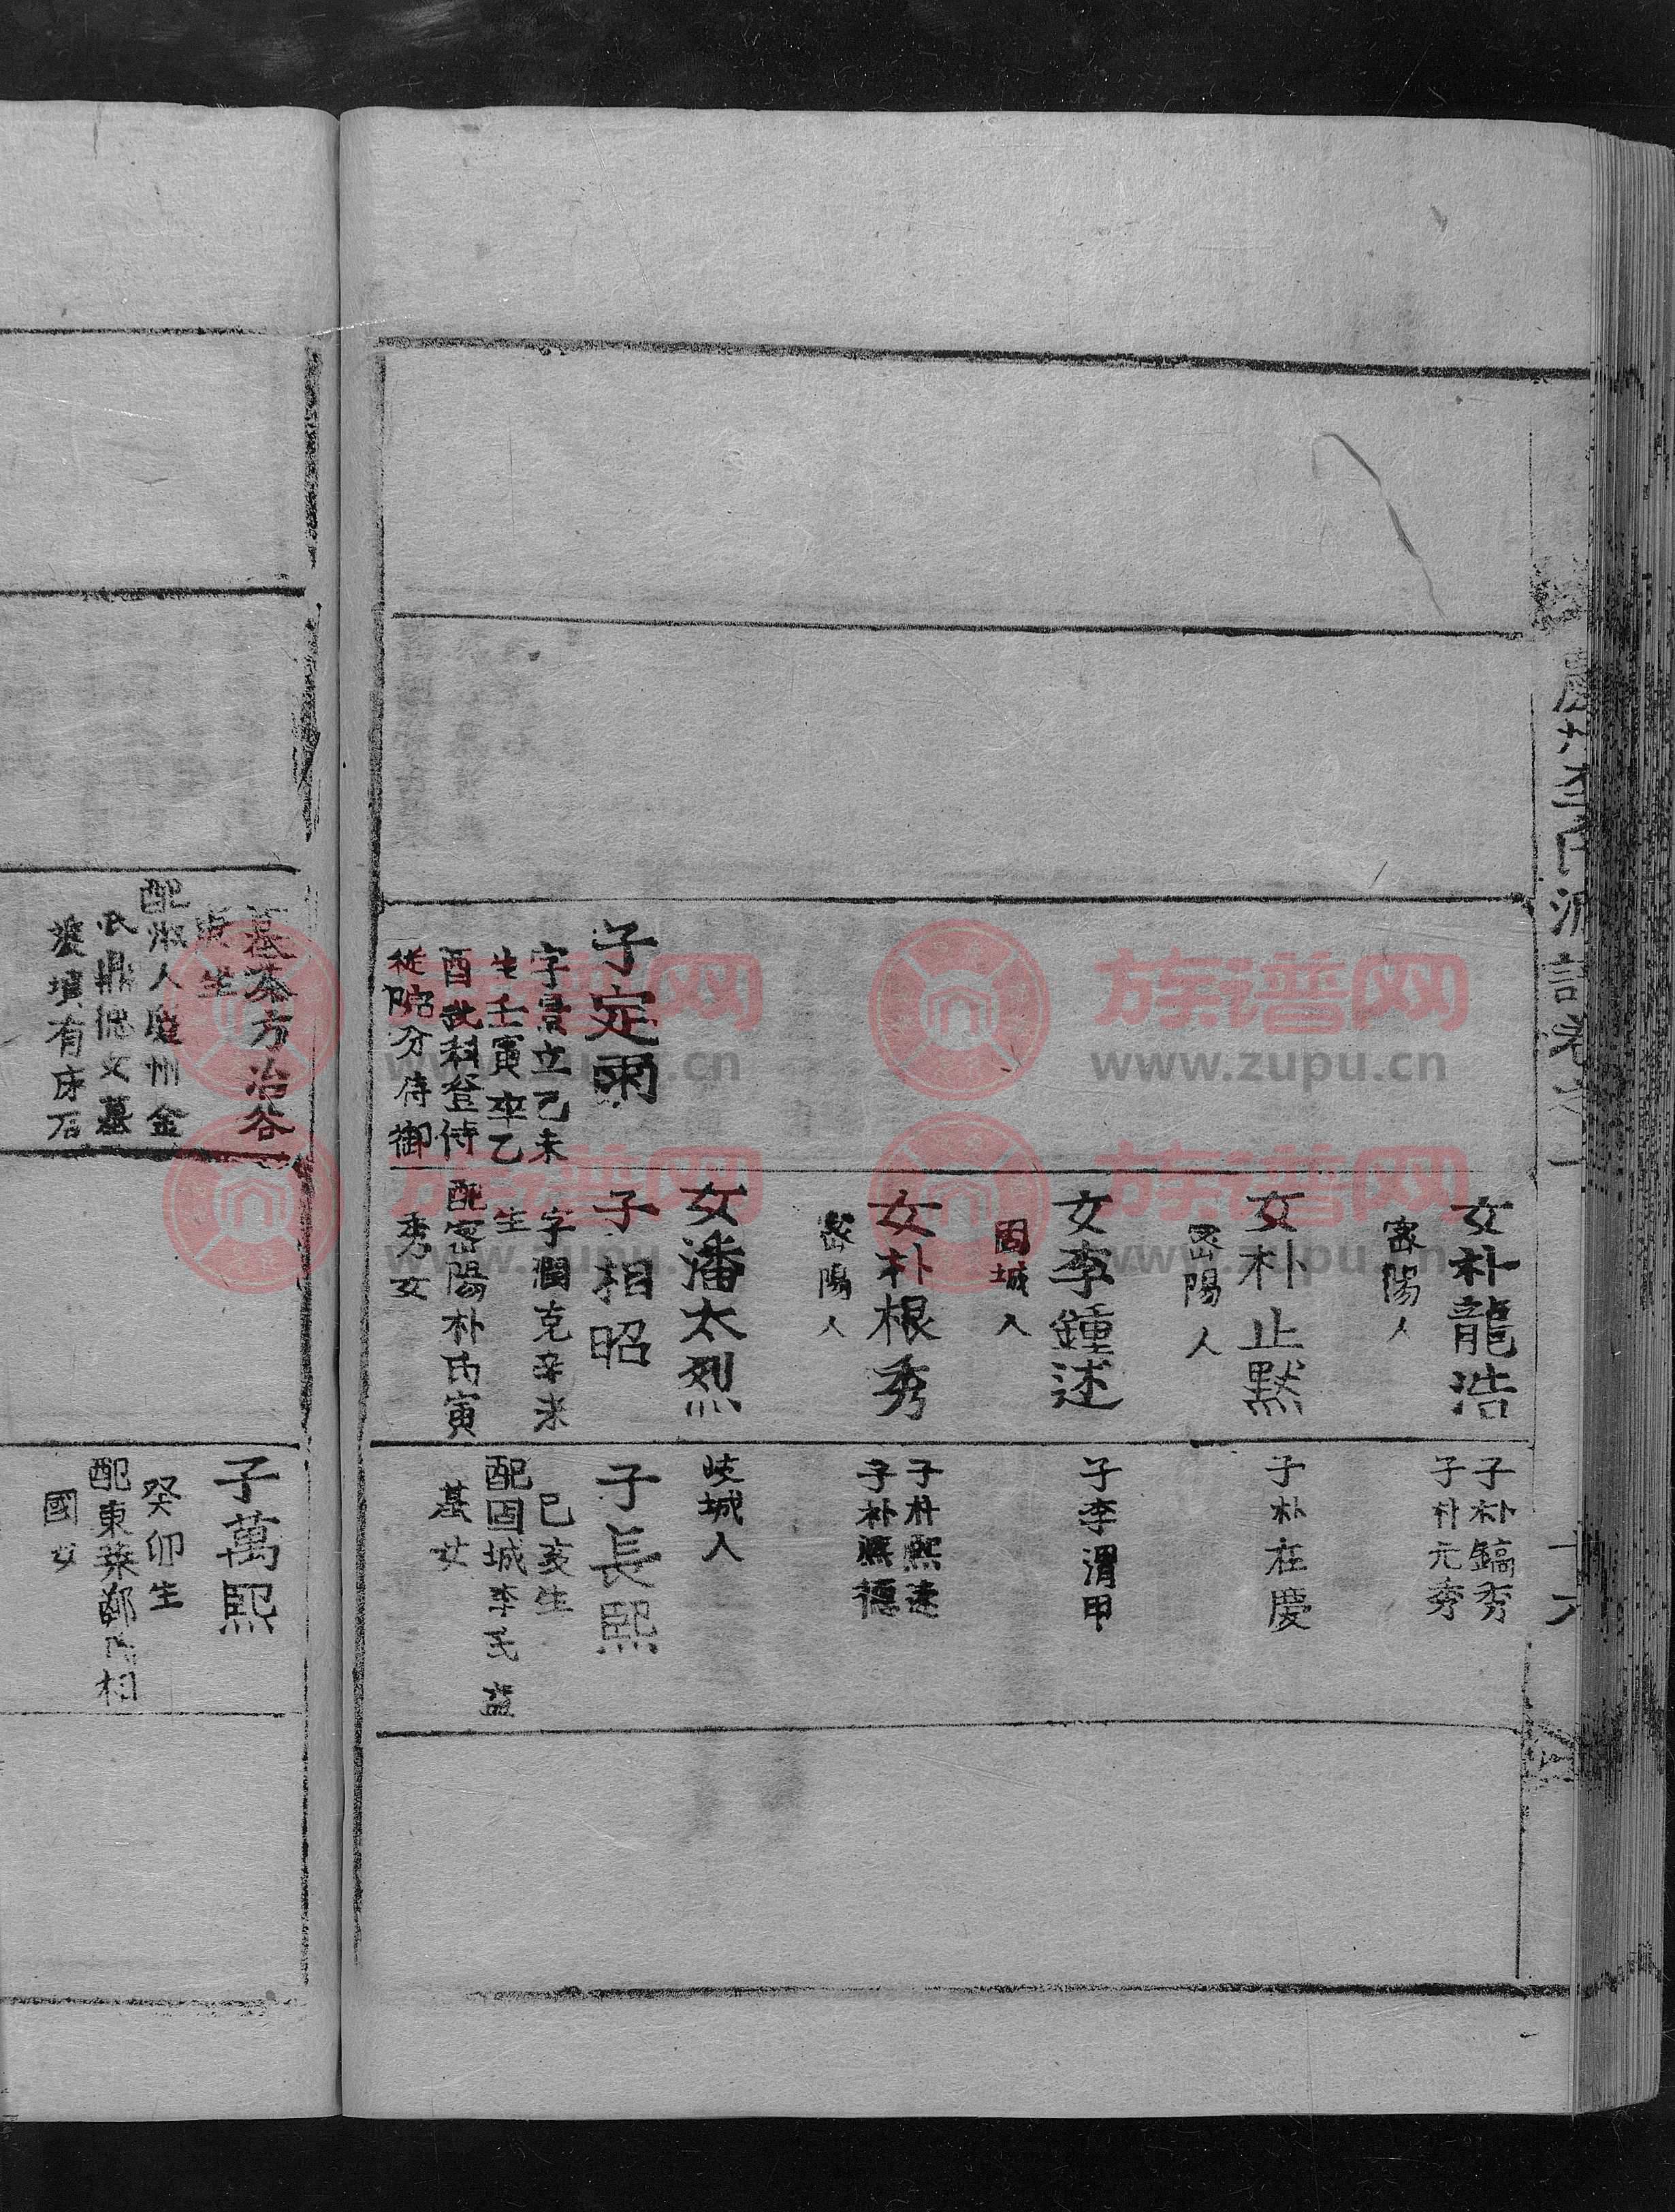 子定雨
字景立己未
生壬寅卒乙
酉武科登侍
從院分侍御
女朴龍浩
密陽人
女朴止黙
密陽人
女李鍾述
固城人
女朴根秀
密陽人
女潘太烈
子相昭
字潤克辛未
生
配密陽朴氏寅
秀女
子朴鎬秀
子朴元秀
子朴在慶
子李渭甲
子朴熙達
子朴熙德
岐城人
子長熙
己亥生
配固城李氏益
基女
墓茶方冶谷
坐
配淑人慶州金
氏鼎德女墓
雙墳有床石
子萬熙
癸卯生
配東萊鄭氏相
國女
族谱网
www.zupu.cn
族谱网
www.zupu.cn
族谱网
www.zupu.cn
族谱网
www.zupu.cn